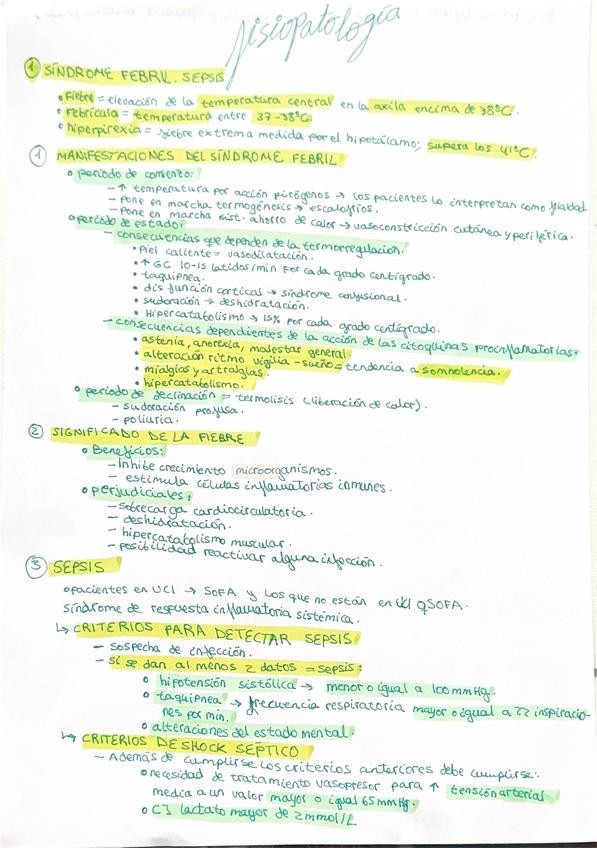 fisiopatología
① SÍNDROME FEBRIL. SEPSIS
• Fiebre = elevación de la temperatura central en la axila encima de 38ºC.
• Febrícula = temperatura entre 37-38ºC.
• hiperpirexia = fiebre extrema medida por el hipotálamo; supera los 41ºC.
① MANIFESTACIONES DEL SÍNDROME FEBRIL
• periodo de comienzo:
- ↑ temperatura por acción pirógenos → los pacientes lo interpretan como frialdad
- pone en marcha termogénesis → escalofríos.
- Pone en marcha sist. ahorro de calor → vasoconstricción cutánea y periférica.
• periodo de estado:
- consecuencias que dependen de la termorregulación.
• piel caliente = vasodilatación.
• ↑ GC 10-15 latidos/min por cada grado centígrado.
• taquipnea.
• disfunción cortical → síndrome confusional.
• sudoración → deshidratación.
• Hipercatabolismo → 15% por cada grado centígrado.
- consecuencias dependientes de la acción de las citoquinas proinflamatorias.
• astenia, anorexia, malestar general
• alteración ritmo vigilia-sueño = tendencia a somnolencia.
• mialgias y artralgias.
• hipercatabolismo.
• periodo de declinación = termolisis (liberación de calor).
- sudoración profusa.
- poliuria.
② SIGNIFICADO DE LA FIEBRE
• Beneficios:
- Inhibe crecimiento microorganismos.
- estimula células inflamatorias inmunes.
• perjudiciales:
- sobrecarga cardiocirculatoria.
- deshidratación.
- hipercatabolismo muscular.
- posibilidad reactivar alguna infección.
③ SEPSIS
• pacientes en UCI → SOFA y los que no están en UCI qSOFA.
síndrome de respuesta inflamatoria sistémica.
↳ CRITERIOS PARA DETECTAR SEPSIS
- Sospecha de infección.
- si se dan al menos 2 datos = sepsis:
• hipotensión sistólica → menor o igual a 100 mmHg.
• taquipnea → frecuencia respiratoria mayor o igual a 22 inspiracio-
nes por min.
• alteraciones del estado mental.
↳ CRITERIOS DE SHOCK SÉPTICO
- Además de cumplirse los criterios anteriores debe cumplirse:
• necesidad de tratamiento vasopresor para ↑ tensión arterial
media a un valor mayor o igual 65 mmHg.
• C] lactato mayor de 2 mmol/L